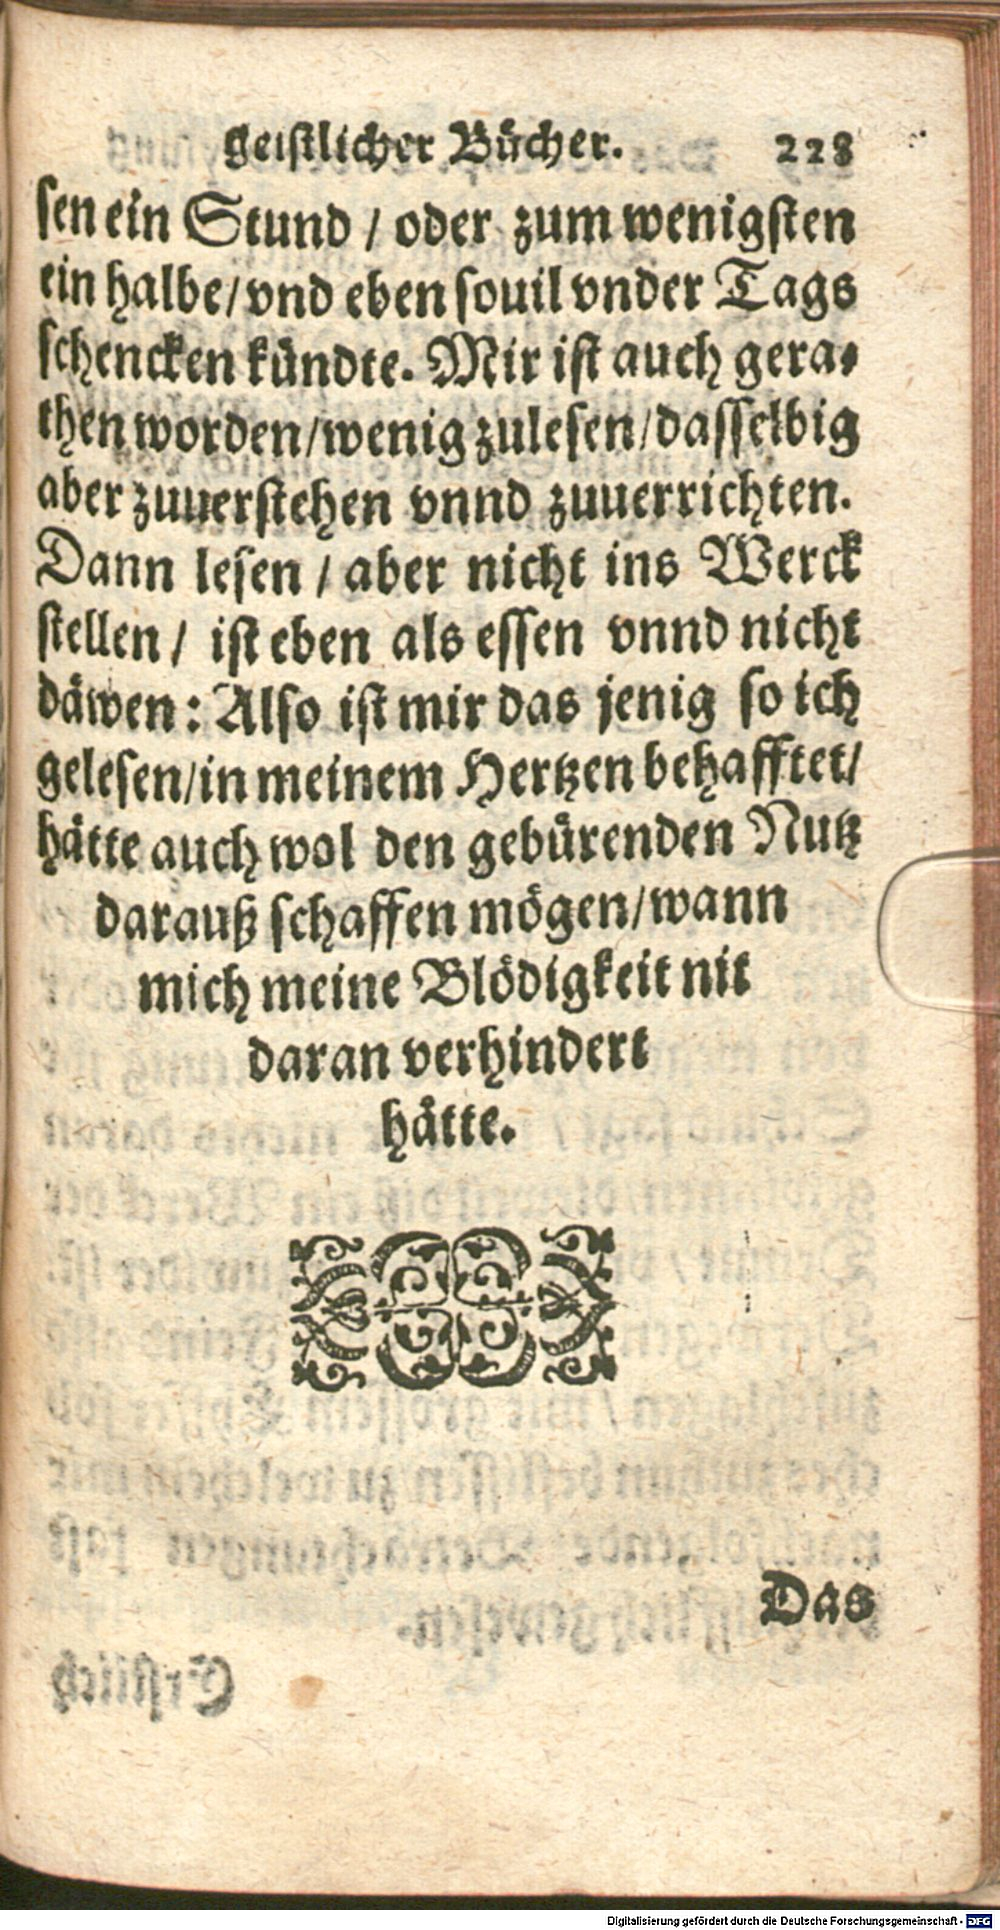 geiſtlicher Bücher. 228
ſen ein Stund / oder zum wenigſten
ein halbe/ vnd eben ſouil vnder Tags
ſchencken kündte. Mir iſt auch gera⸗
then worden/wenig zuleſen/daſſelbig
aber zuuerſtehen vnnd zuuerrichten.
Dann leſen / aber nicht ins Werck
ſtellen / iſt eben als eſſen vnnd nicht
däwen: Alſo iſt mir das jenig ſo ich
geleſen/in meinem Hertzen behafftet/
hätte auch wol den gebürenden Nutz
darauß ſchaffen mögen/wann
mich meine Blödigkeit nit
daran verhindert
hätte.
Das
Digitalisierung gefördert durch die Deutsche Forschungsgemeinschaft - DFG